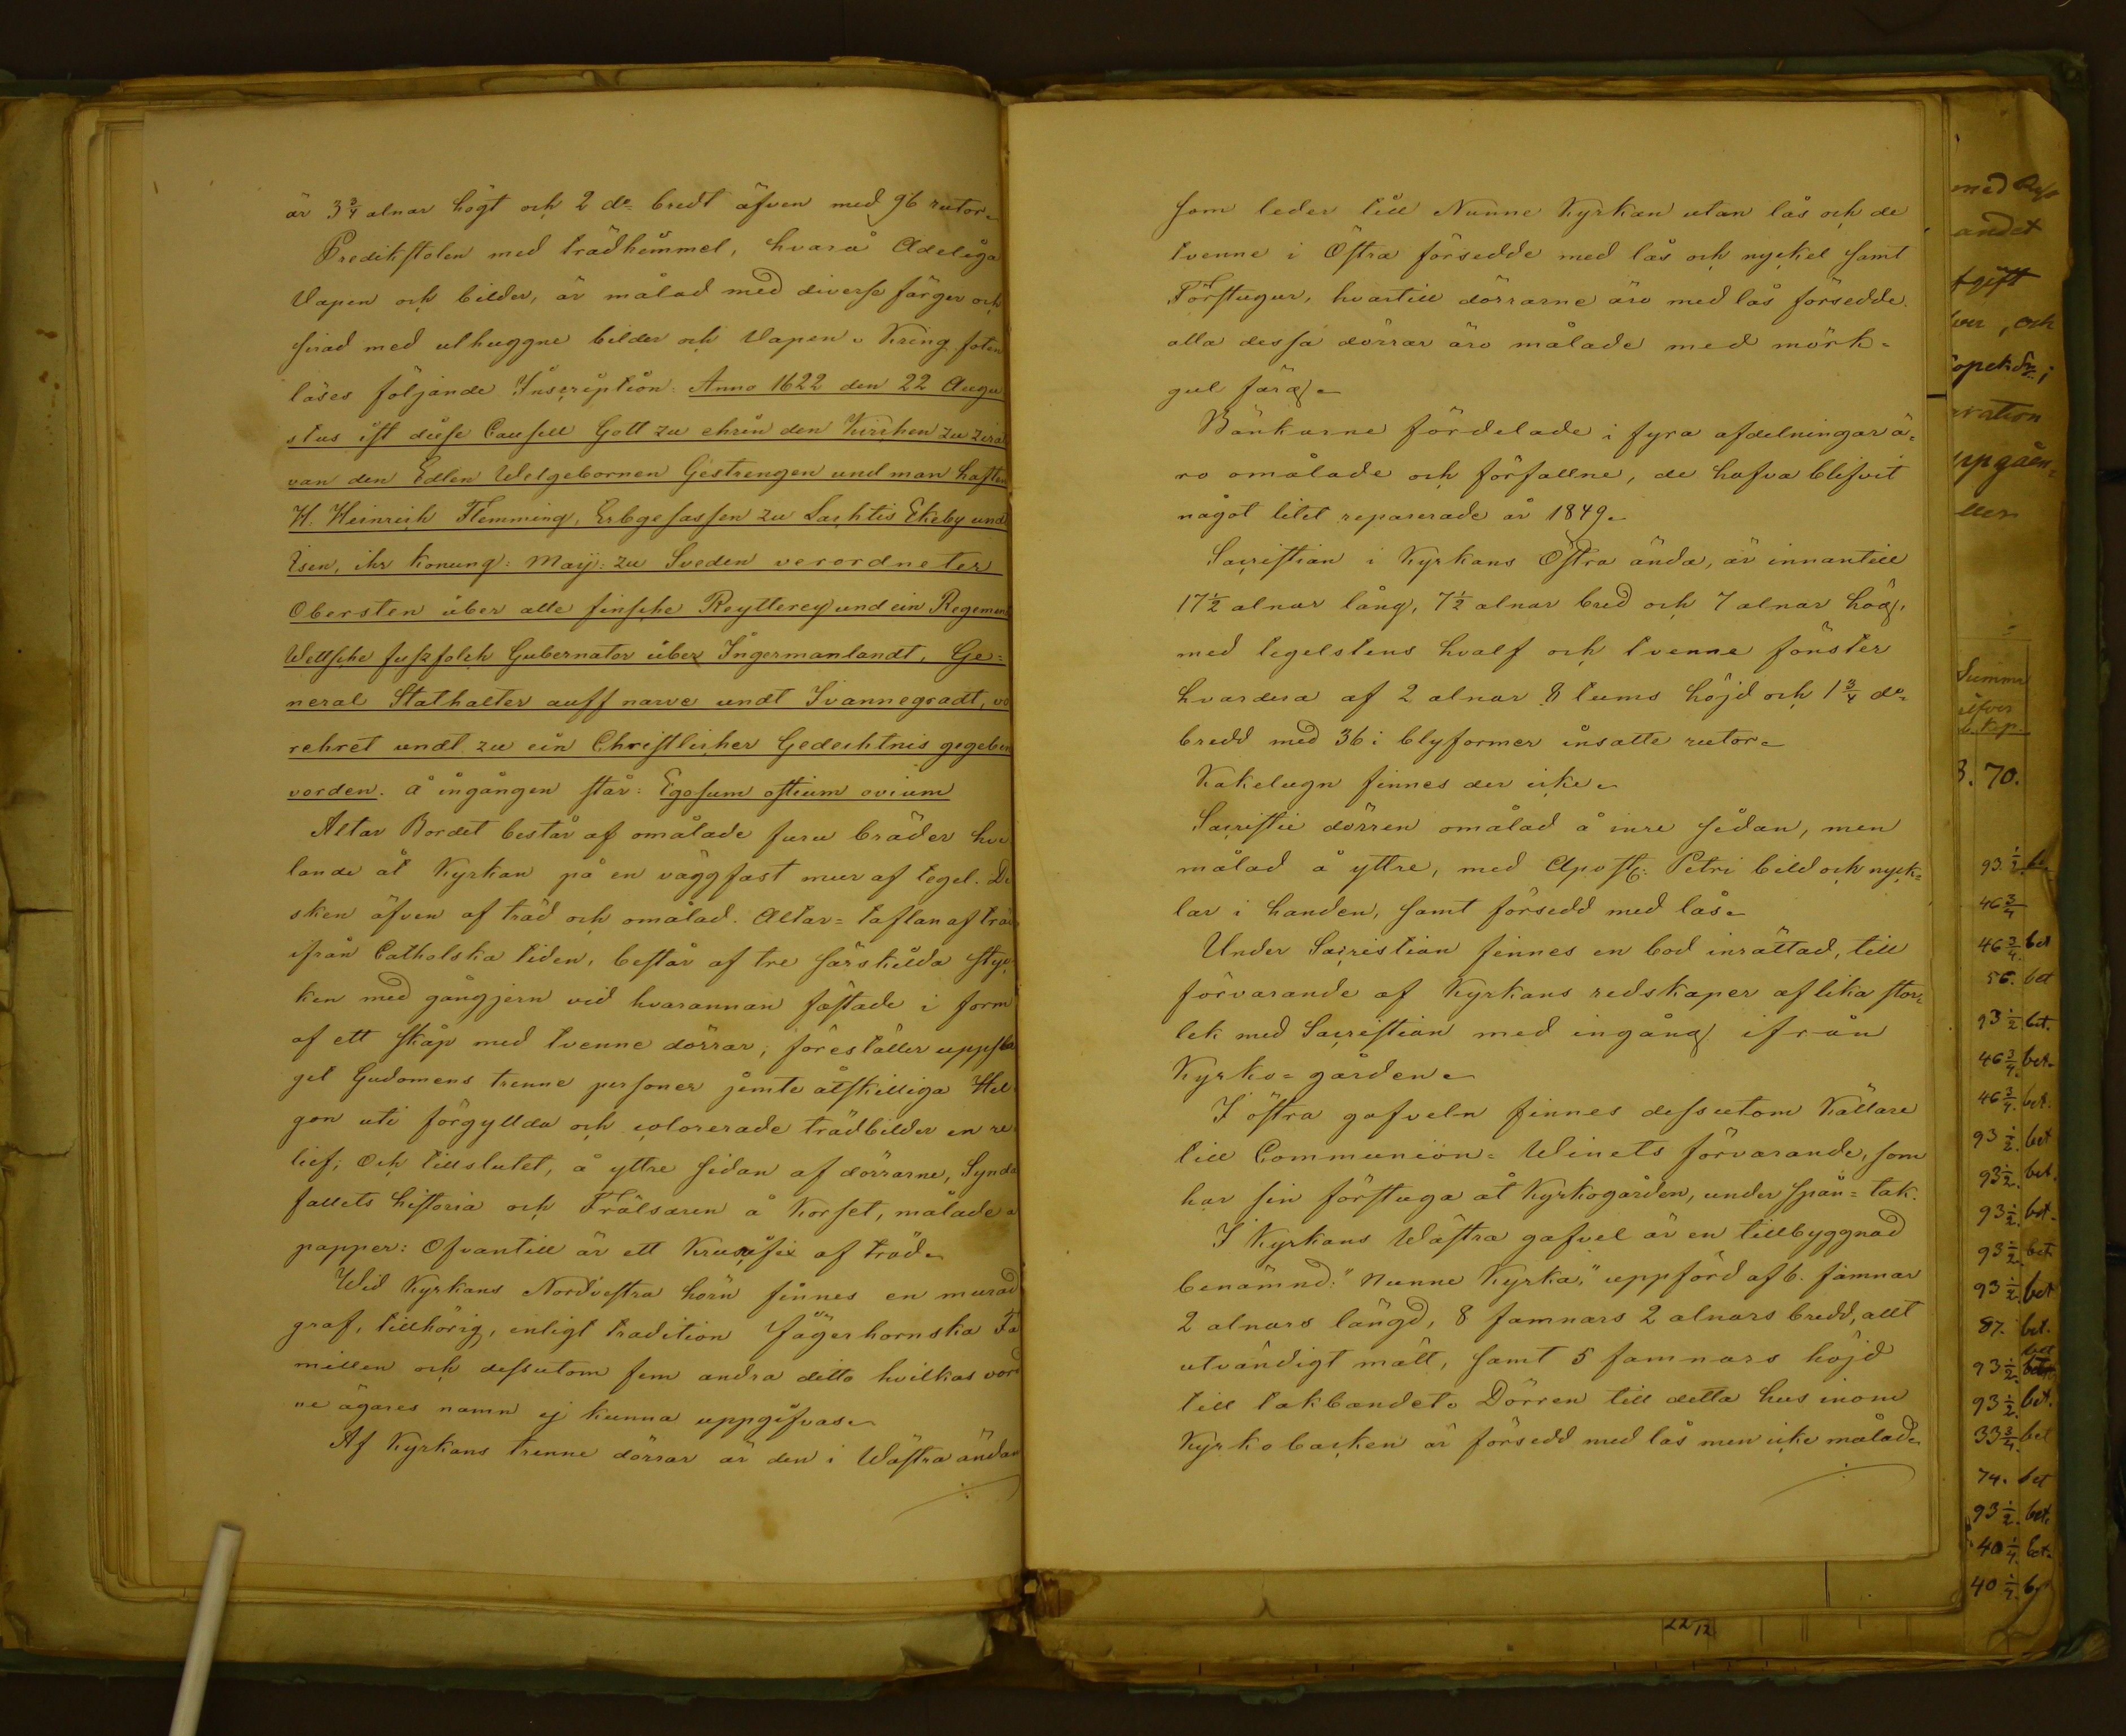 är 3 3/4 alnar högt och 2 do bredt äfven med 96 rutor.
Predikstolen med trädhimmel, hvarå Adeliga
Vapen och bilder, är målad med diverse färger och
sirad med uthuggne bilder och Vapen. Kring foten
läses följande Inscription: Anno 1622 den 22 Augu
stus ist diese Causell Gott zu ehrin den Kirchen zu zira
van den Edlen Welgebornen Gestrengen und man haften
H. Heinrich Flemming, Erbgesassen zu Lachtis Ekeby und
Isen, ihr Konung: Maij: zu Sveden verordneter
Obersten über alle finsche Reytterey und ein Regement
Wettsche fuszfolch Gubernator über Ingermanlandt, Ge=
neral Stathalter auff narve undt Ivannegradt, vo
rehret undt zu ein Christlicher Gedechtnis gegeben
vorden. å ingången står: Ego sum ostium ovium
Altar Bordet består af omålade furu bräder hvi
lande åt Kyrkan på en väggfast mur af tegel. Di
sken äfven af träd och omålad. Altar=taflan af träd
ifrån Catholska tiden, består af tre särskilda styc
ken med gångjern vid hvarannan fästade i form
af ett skåp med tvenne dörrar; föreställer uppsla
get Gudomens trenne personer jemte åtskilliga Hel
gon uti förgyllda och colorerade trädbilder en re
lief; Och tillslutet, å yttre sidan af dörrarne, Synda
fallets historia och Frälsaren å Korset, målade å
papper: Ofvantill är ett Krusifix af träd.
Wid Kyrkans Nordvestra hörn finnes en murad
graf, tillhörig, enligt tradition Jägerhornska Fa
millen och dessutom fem andra ditto hvilkas vord
ne ägares namn ej kunna uppgifvas.
Af Kyrkans trenne dörrar är den i Wästra ändan
som leder till Nunne Kyrkan utan lås och de
tvenne i Östra försedde med lås och nyckel samt
Förstugur, hvartill dörrarne äro med lås försedde.
alla dessa dörrar äro målade med mörk=
gul färg.
Bänkarne fördelade i fyra afdelningar ä=
ro omålade och förfallne, de hafva blifvit
något litet reparerade år 1849.
Sacristian i Kyrkans Östra ända, är innantill
17 1/2 alnar lång, 7 1/2 alnar bred och 7 alnar hög,
med tegelstens hvalf och tvenne fönster
hvardera af 2 alnar 8 tums höjd och 1 3/4 do
bredd med 36 i blyformer insatte rutor.
Kakelugn finnes der icke.
Sacristie dörren omålad å inre sidan, men
målad å yttre, med Apost: Petri bild och nyck=
lar i handen, samt försedd med lås.
Under Sacristian finnes en bod inrättad, till
förvarande af Kyrkans redskaper af lika stor=
lek med Sacristian med ingång ifrån
Kyrko=gården.
I östra gafveln finnes dessutom Källare
till Communion=Winets förvarande, som
har sin förstuga åt Kyrkogården, under spån=tak.
I Kyrkans Wästra gafvel är en tillbyggnad
benämnd: "Nunne Kyrka," uppförd af 6. famnar
2 alnars längd, 8 famnars 2 alnars bredd, allt
utvändigt mätt, samt 5 famnars höjd
till takbandet. Dörren till detta hus inom
Kyrkobacken är försedd med lås men icke målad.
med
andet
ver, och
Summa
Kop.
3. 70.
93 1/2
46 3/4
46 3/4 bet
56. bet
93 1/2 bet.
46 3/4 bet.
46 3/4 bet.
93 1/2 bet
93 1/2 bet.
93 1/2 bet.
93 1/2 bet
93 1/2 bet
87. bet.
93 1/2 bet
93 1/2 bet.
33 3/4 bet
74. bet
93 1/2 bet.
40 1/4 bet.
40 1/4
22/12